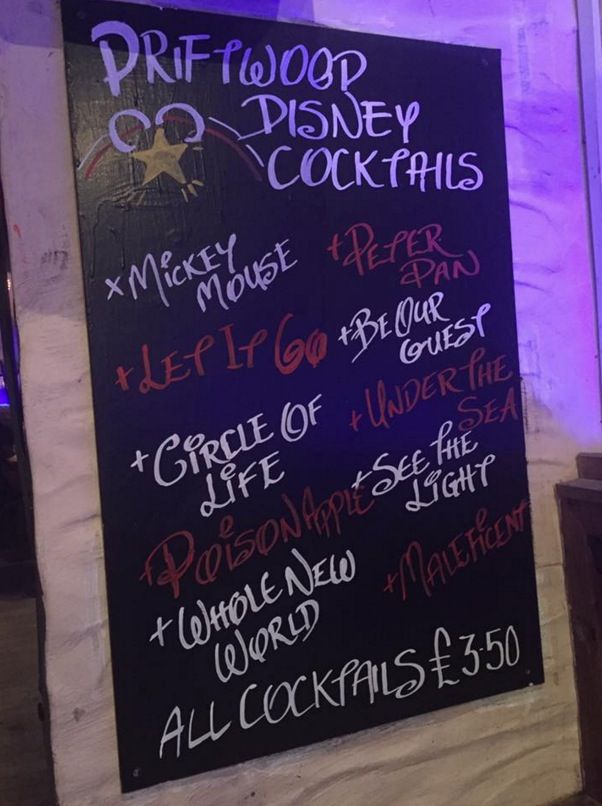 DRIFTWOOD
DISNEY
COCKTAILS
x MICKEY
MOUSE
+ PETER
PAN
+ LET IT GO
+ BE OUR
GUEST
+ CIRCLE OF
LIFE
+ UNDER THE
SEA
+ POISON APPLE
+ SEE THE
LIGHT
+ WHOLE NEW
WORLD
+ MALEFICENT
ALL COCKTAILS £3.50